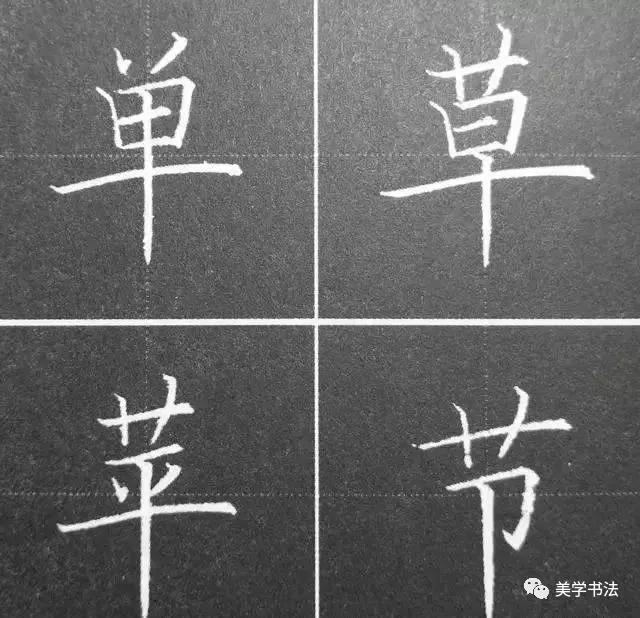 单草
苹节
美学书法